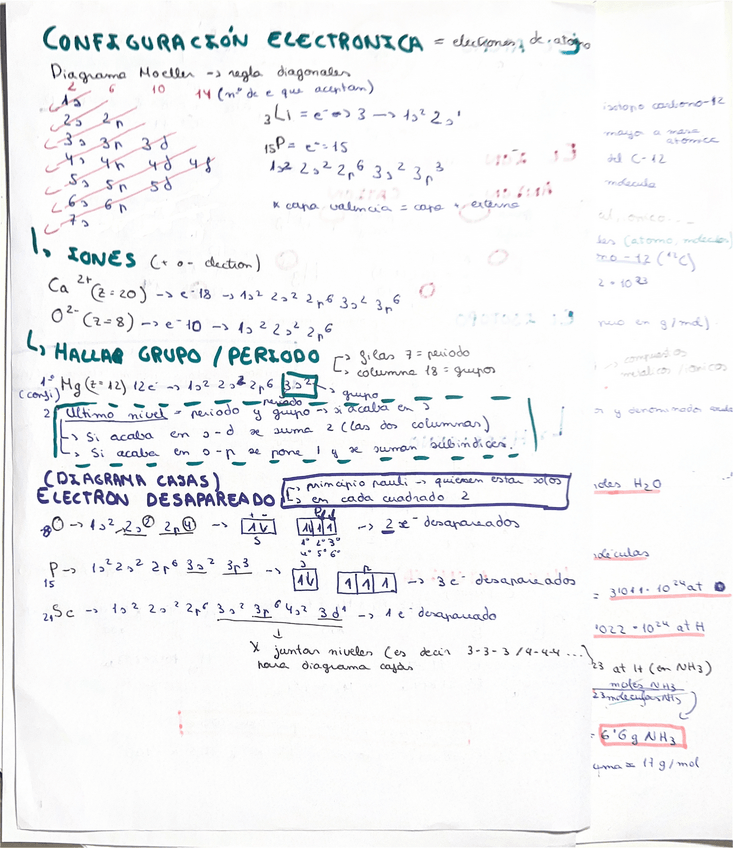 CONFIGURACIÓN ELECTRONICA = electrones de atomo
Diagrama Moeller -> regla diagonales
2 6 10 14 (nº de e que aceptan)
1s
2s 2p
3s 3p 3d
4s 4p 4d 4f
5s 5p 5d
6s 6p
7s
₃Li = e⁻ => 3 -> 1s² 2s¹
₁₅P = e⁻ = 15
1s² 2s² 2p⁶ 3s² 3p³
* capa valencia = capa + externa
↳ IONES (+ o - electron)
Ca²⁺ (z=20) -> e⁻18 -> 1s² 2s² 2p⁶ 3s² 3p⁶
O²⁻ (z=8) -> e⁻10 -> 1s² 2s² 2p⁶
↳ HALLAR GRUPO / PERIODO
-> filas 7 = periodo
-> columna 18 = grupos
1º Mg (z=12) 12e⁻ -> 1s² 2s² 2p⁶ 3s² -> grupo
(confi)
periodo
2 Ultimo nivel = periodo y grupo -> si acaba en s
-> Si acaba en s-d se suma 2 (las dos columnas)
-> Si acaba en s-p se pone 1 y se suman subindices.
(DIAGRAMA CAJAS)
ELECTRON DESAPAREADO
-> principio pauli -> quieren estar solos
-> en cada cuadrado 2
₈O -> 1s² 2s² 2p⁴ -> 1↓ 1↓ 1 1 -> 2 e⁻ desapareados
s
1º 2º 3º
4º 5º 6º
P -> 1s² 2s² 2p⁶ 3s² 3p³ -> 1↓ 1 1 1 -> 3 e⁻ desapareados
15
s p
₂₁Sc -> 1s² 2s² 2p⁶ 3s² 3p⁶ 4s² 3d¹ -> 1 e⁻ desapareado
* juntar niveles (es decir 3-3-3 / 4-4-4 ...)
para diagrama cajas
isotopo carbono-12
mayor a masa
atomica
del C-12
molecula
(atomo, molecula)
-12 (¹²C)
en g/mol)
H₂O
= 3'011 · 10²⁴ at
1022 · 10²⁴ at H
23 at H (en NH₃)
moles NH₃
23 moleculas NH₃
= 6'6 g NH₃
17 g/mol